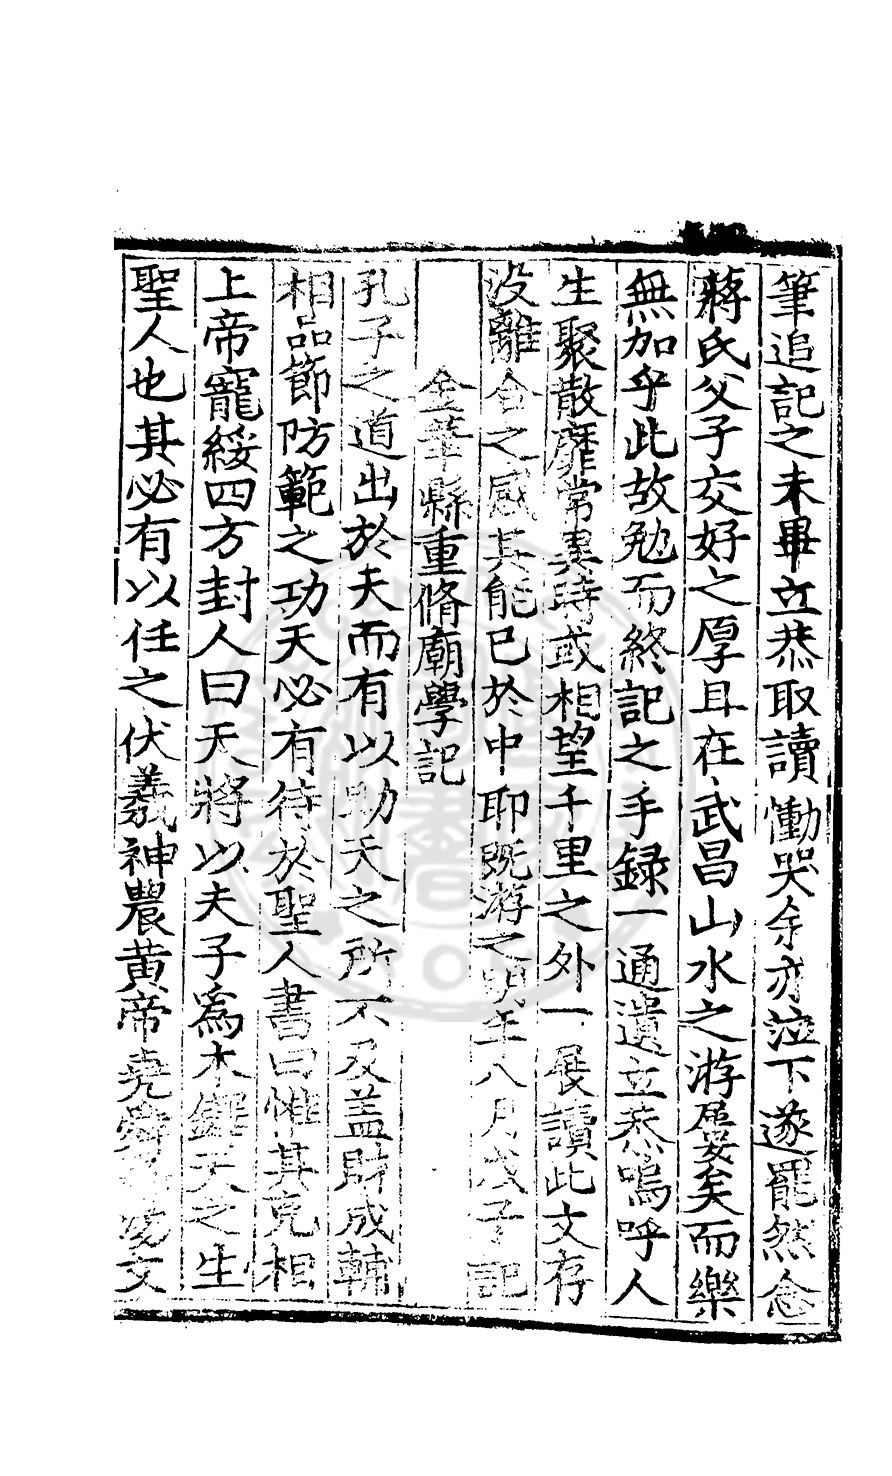 筆追記之未畢立恭取讀慟哭余亦泣下遂罷然念
蔣氏父子交好之厚且在武昌山水之游屢矣而樂
無加乎此故勉而終記之手録一通遺立恭嗚呼人
生聚散靡常異時或相望千里之外一展讀此文存
沒離合之感其能已於中耶既游之明年八月戊子記
金華縣重脩廟學記
孔子之道出於天而有以助天之所不及盖財成輔
相品節防範之功天必有待於聖人書曰惟其克相
上帝寵綏四方封人曰天將以夫子爲木鐸天之生
聖人也其必有以任之伏羲神農黄帝堯舜文